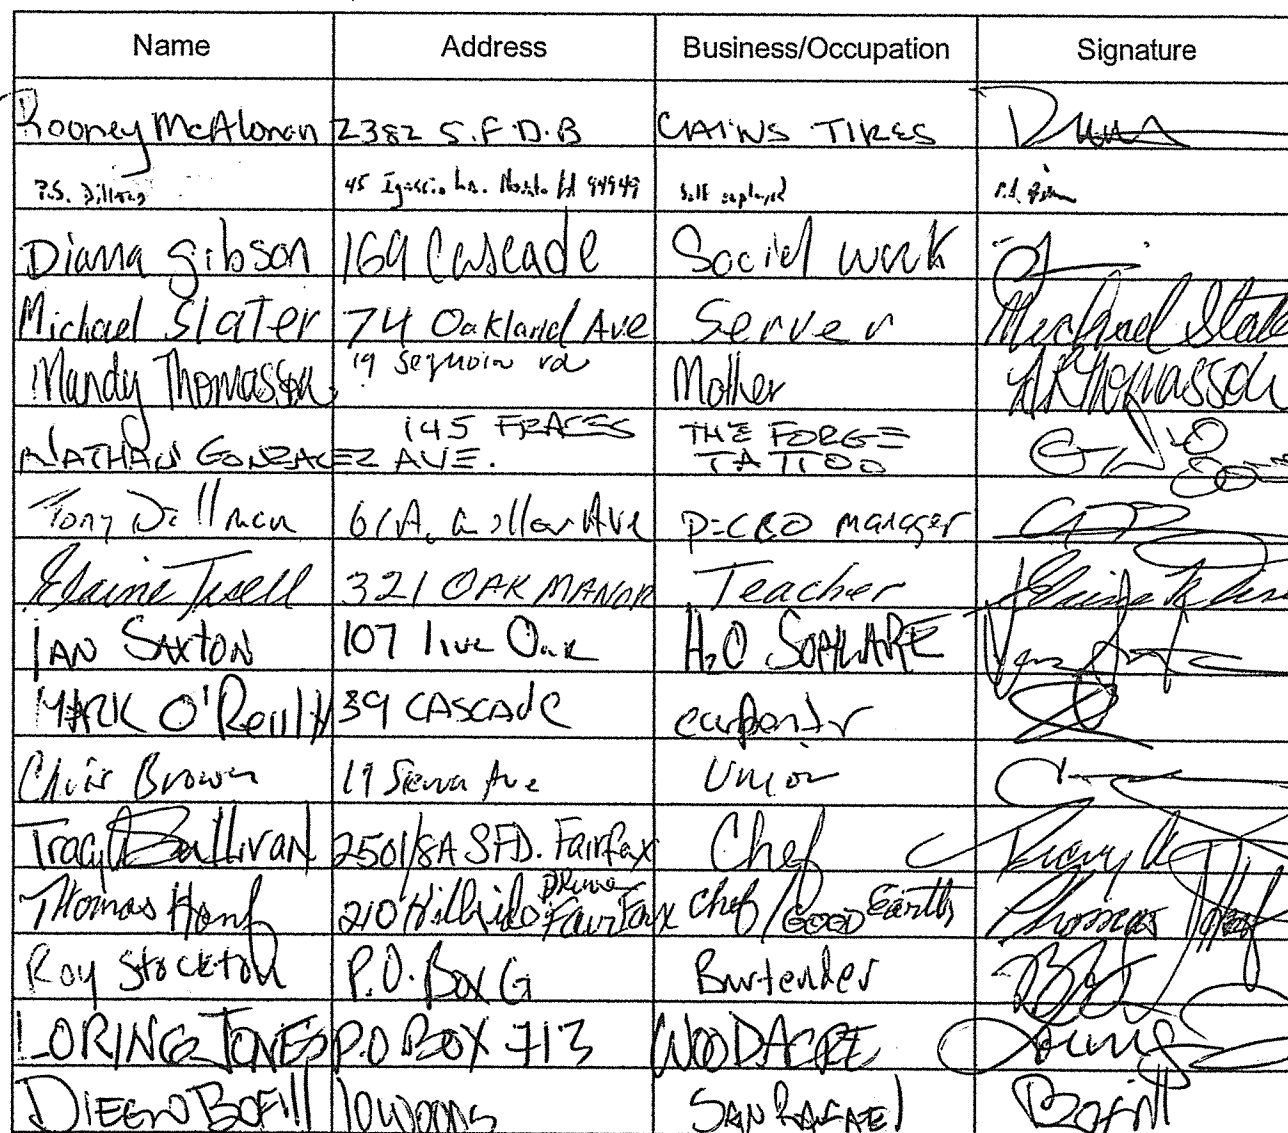 Name Address Business/Occupation Signature
Rooney McAlonan 2382 S.F.D.B CAINS TIRES
P.S. 45 Ln. 94949 Self employed
Diana Gibson 169 Cascade Social work
Michael Slater 74 Oakland Ave Server Michael Slate
Mandy Thomasson 19 Sequoia rd Mother Thomasson
145 FRACES THE FORGE
NATHAN GONZALEZ AVE. TATTOO
Tony Dillman Ave manager
Elaine Twell 321 OAK MANOR Teacher Elaine
IAN SAXTON 107 live Oak H2O SOFTWARE
MARK O'Reilly 39 CASCADE carpentr
Chris Brown 19 Sierra Ave Union
Tracy Sullivan 2501/8A SFD. Fairfax Chef Tracy
Drive
Thomas 210 Hillside Fairfax Chef / GOOD Earth Thomas
Roy Stockton P.O. Box G Bartender
LORING JONES P.O BOX 713 WOODACRE Loring
DIEGO BOFIll 10 WOODS SAN RAFAEl Bofill